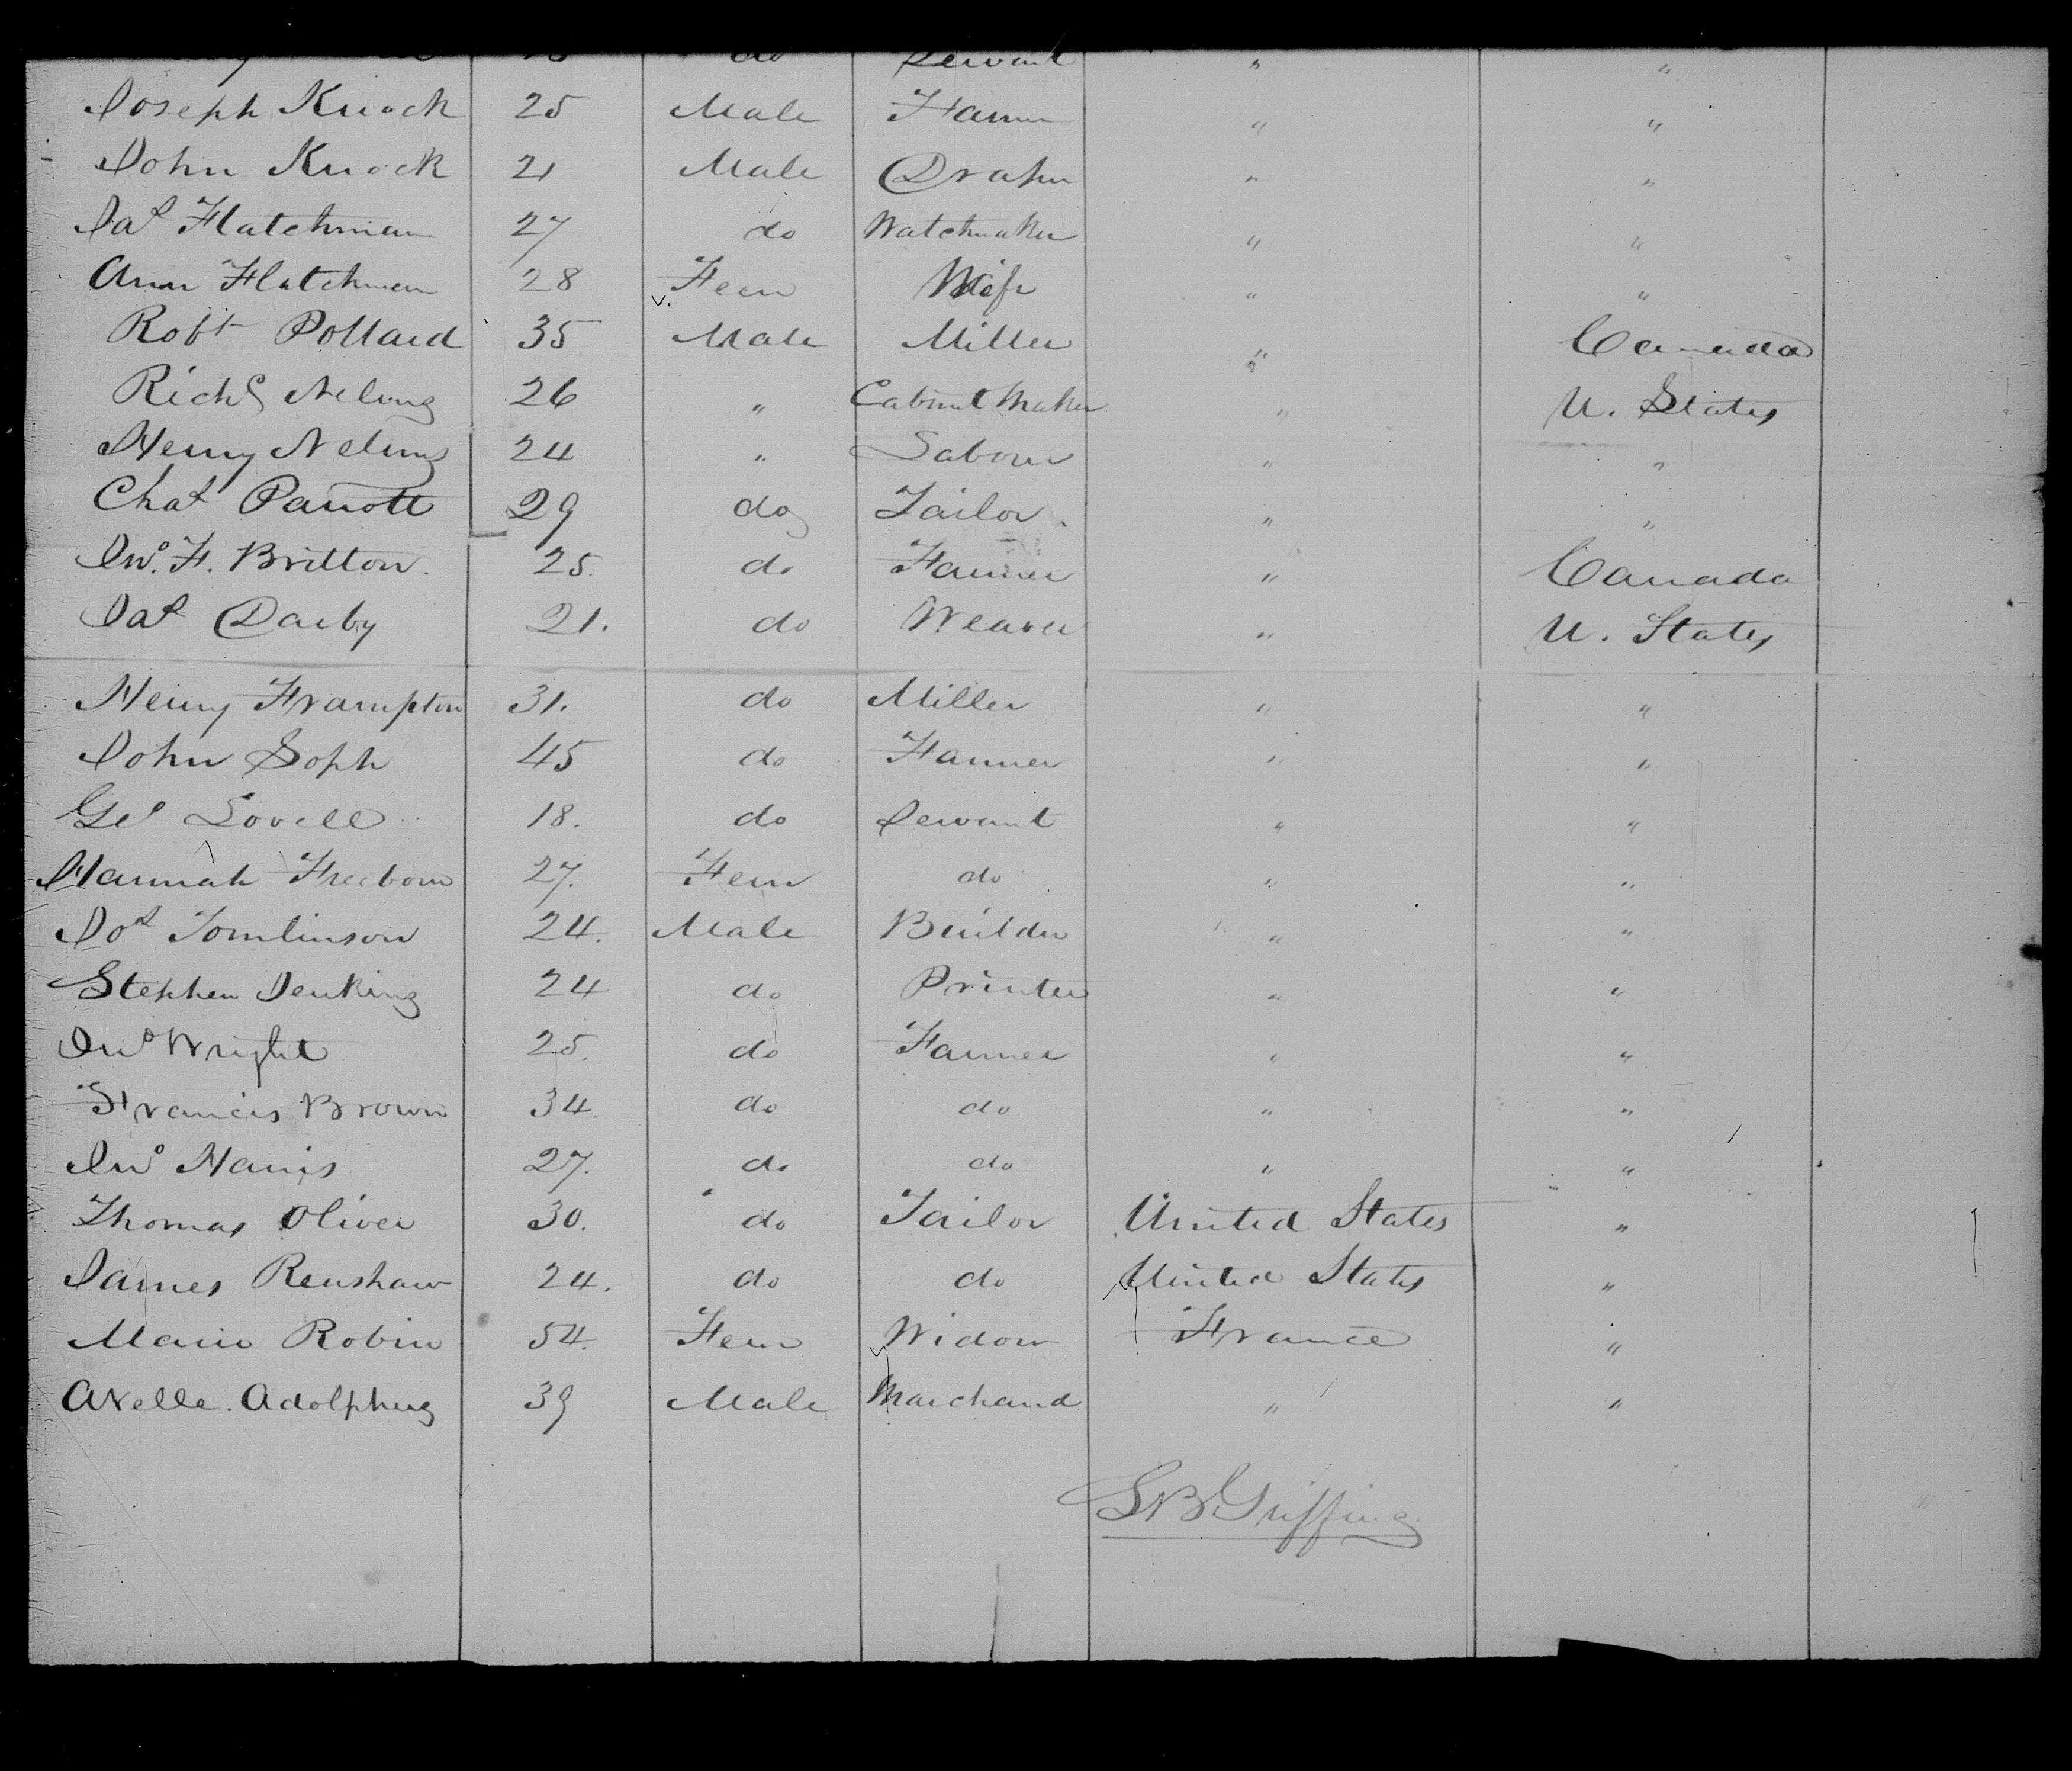 do Servant " "
Joseph Knock 25 Male Farmer " "
John Knock 21 Male Draper " "
Jas Hatchman 27 do Watchmaker " "
Ann Hatchman 28 Fem Wife " "
Robt Pollard 35 Male Miller " Canada
Richd 26 " Cabinet Maker " U. States
Henry 24 " Labourer " "
Chas Parrott 29 do Tailor. " "
Jno. F. Britton. 25. do Farmer " Canada
Jas Darby 21. do Weaver " U. States
Henry Frampton 31. do Miller " "
John Soph 45 do Farmer " "
Geo Lovell 18. do Servant " "
Hannah Freeborn 27. Fem do " "
Jos Tomlinson 24. Male Builder " "
Stephen Jenkins 24 do Printer " "
Jno Wright 25. do Farmer " "
Francis Brown 34 do do " "
Jno Harris 27. do do " "
Thomas Oliver 30. do Tailor United States "
James Renshaw 24. do do United States "
Marie Robin 54. Fem Widow France "
Axelle. Adolphus 39 Male Marchand " "
S B Griffing